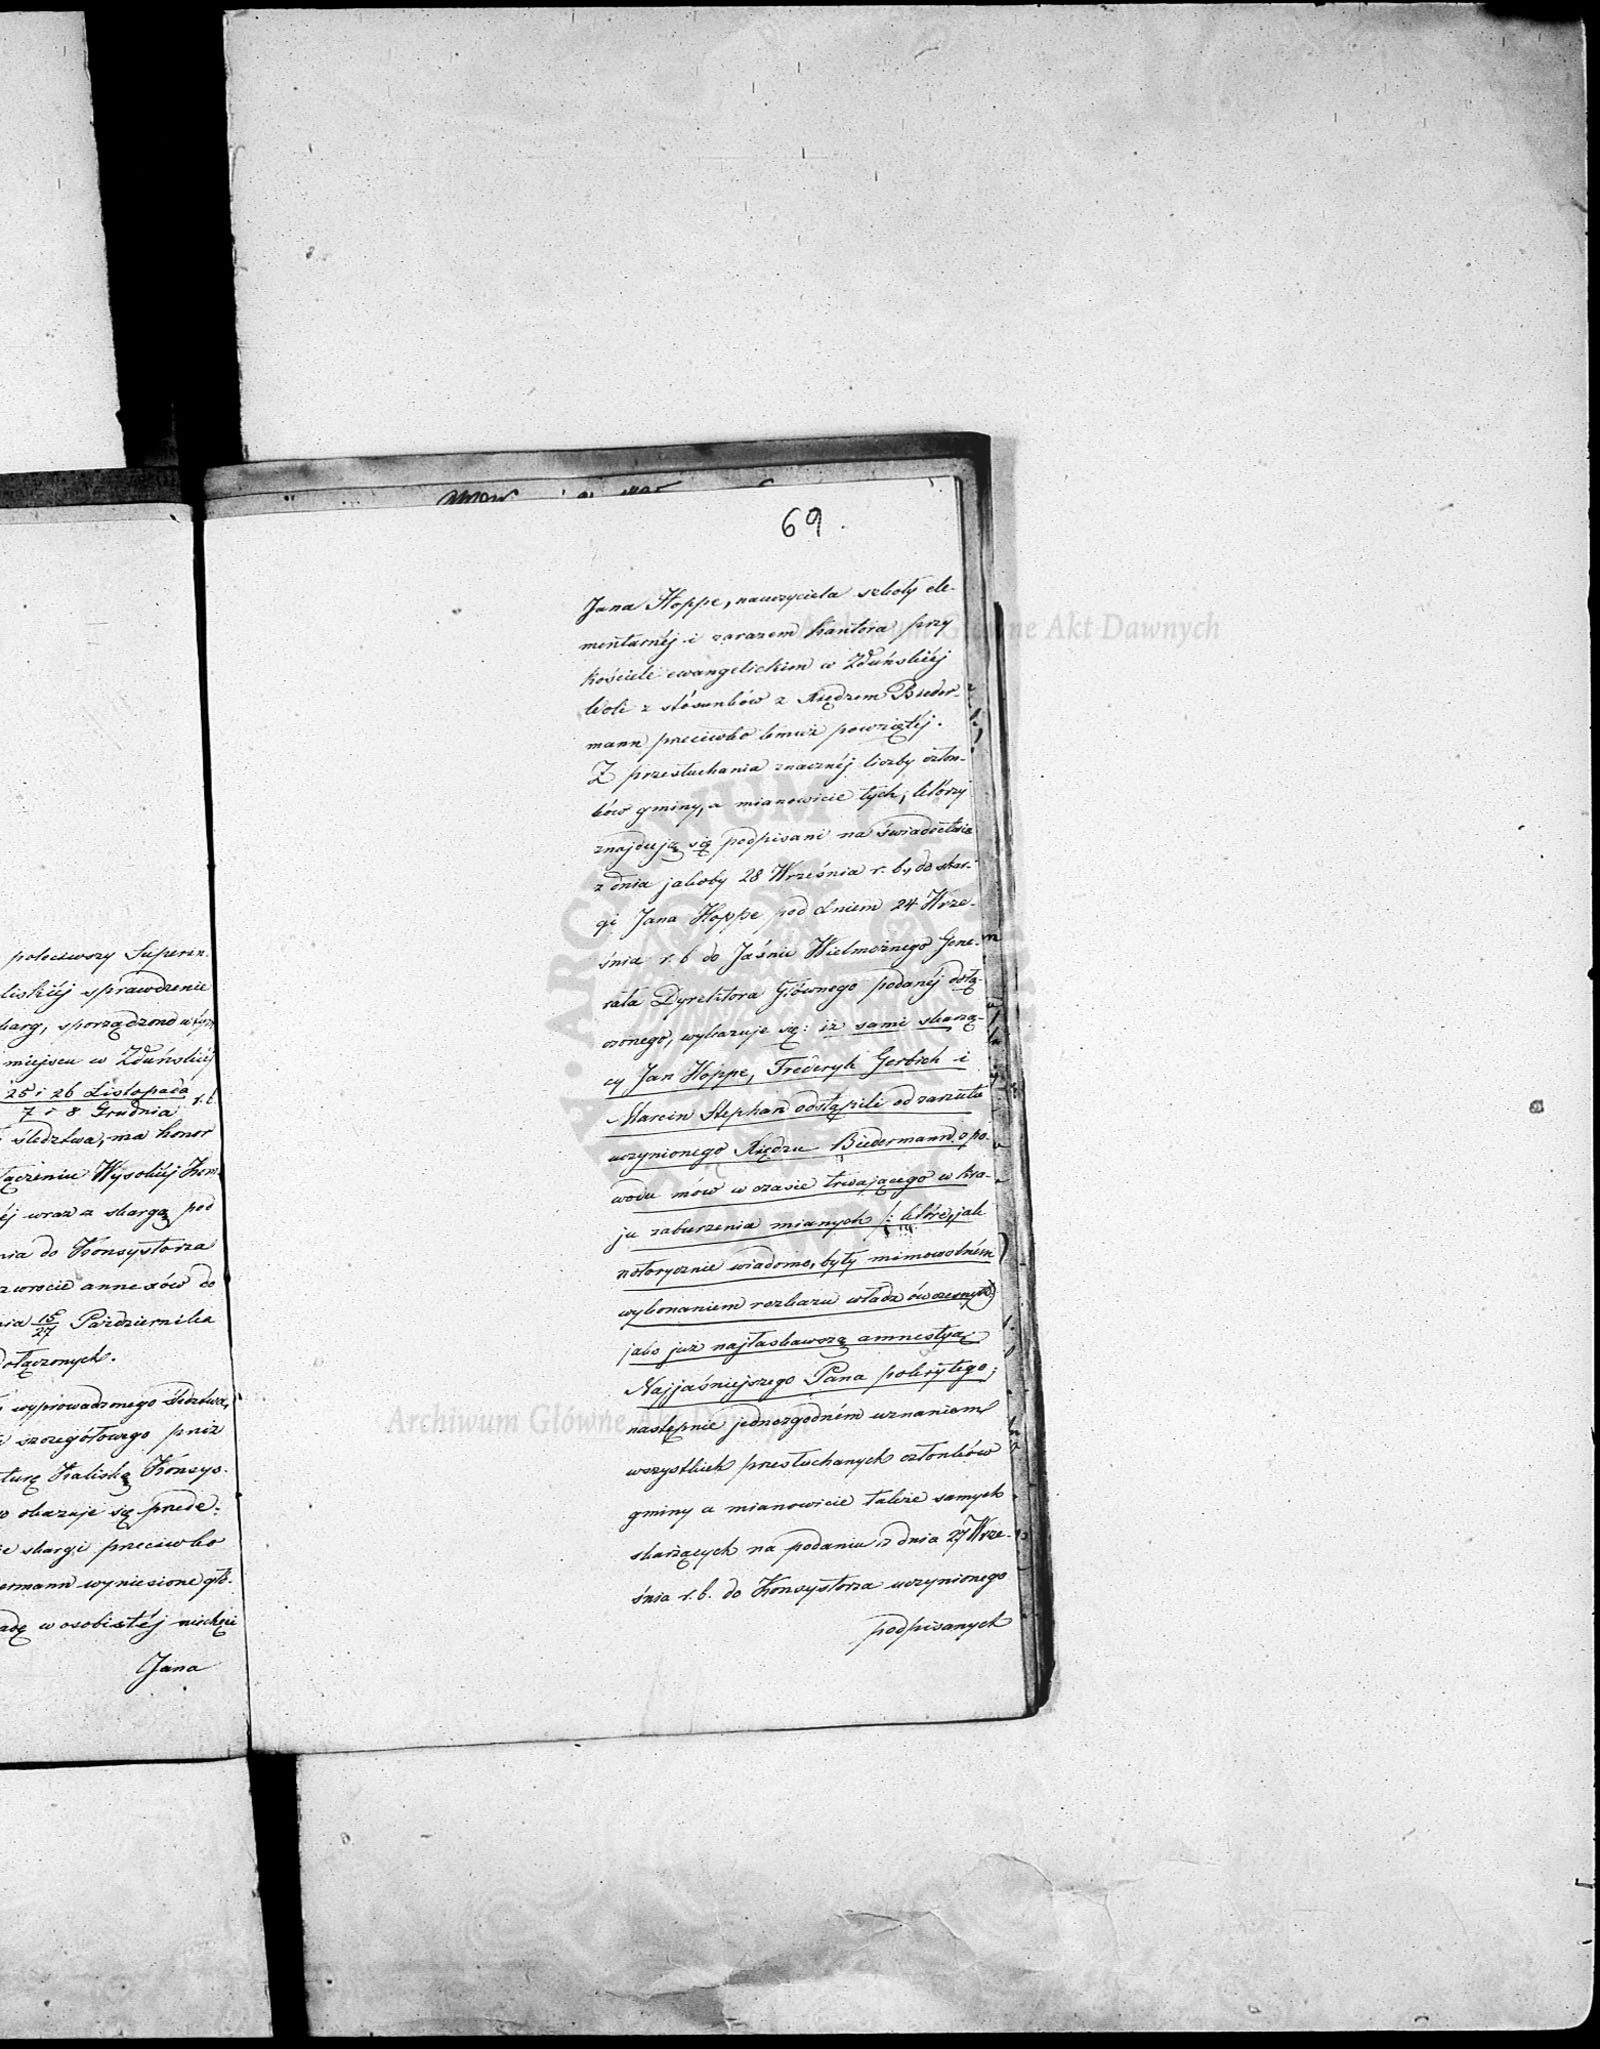 poleciwszy Superin-
liskiéj sprawdzenie
karg, sporządzono w tym
miejscu w Zduńskiéj
25 i 26 Listopada
7 i 8 Grudnia r. b.
śledztwa, ma honor
łączeniu Wysokiéj Kom-
éj wraz z skargą pod
nia do Konsystorza
zwrocie annexów do
nia 15/27 Października
dołączonych.
wyprowadzonego śledztwa,
szczegółowego przez
turę Kaliską Konsys-
okazuje się przede-
e skargi przeciwko
ermann wyniesione głó-
adę w osobistéj niechęci
Jana
69.
Jana Hoppe, nauczyciela szkoły ele-
mentarnéj i zarazem kantora przy
kościele ewangelickim w Zduńskiéj
Woli z stósunków z Xiędzem Bieder-
mann przeciwko temuż powziętéj.
Z przesłuchania znacznéj liczby człon-
ków gminy, a mianowicie tych, którzy
znajdują się podpisani na świadectwie
z dnia jakoby 28 Września r. b. do skar-
gi Jana Hoppe pod dniem 24 Wrze-
śnia r. b. do Jaśnie Wielmożnego Gene-
rała Dyrektora Głównego podanéj dołą-
czonego, wykazuje się: iż sami skarżą-
cy Jan Hoppe, Frederyk Gerbich i
Marcin Stephan odstąpili od zarzutu
uczynionego Xiędzu Biedermann z po-
wodu mów w czasie trwającego w kra-
ju zaburzenia mianych /: które, jak
notorycznie wiadomo, były mimowolném
wykonaniem rozkazu władz ówczesnych :/
jako już najłaskawszą amnestyą
Najjaśniejszego Pana pokrytego;
następnie jednozgodném uznaniem
wszystkich przesłuchanych członków
gminy a mianowicie także samych
skarżących na podaniu z dnia 27 Wrze-
śnia r. b. do Konsystorza uczynionego
podpisanych
Archiwum Główne Akt Dawnych
Archiwum Główne Akt Dawnych